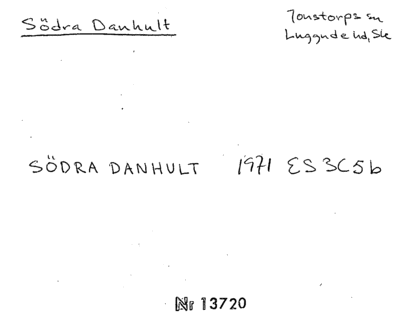 Södra Danhult
Jonstorps sn
Luggude hd, Sk
SÖDRA DANHULT 1971 ES 3C5b
Nr 13720